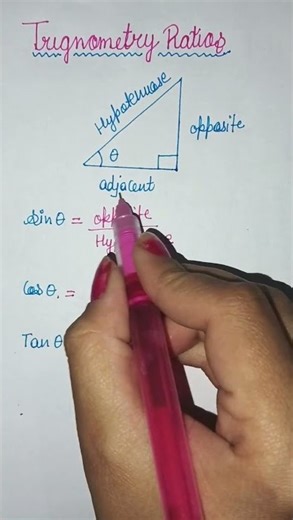 Trignometry Ratios
Hypotenuse
opposite
θ
adjacent
sinθ =
Cosθ. =
Tanθ